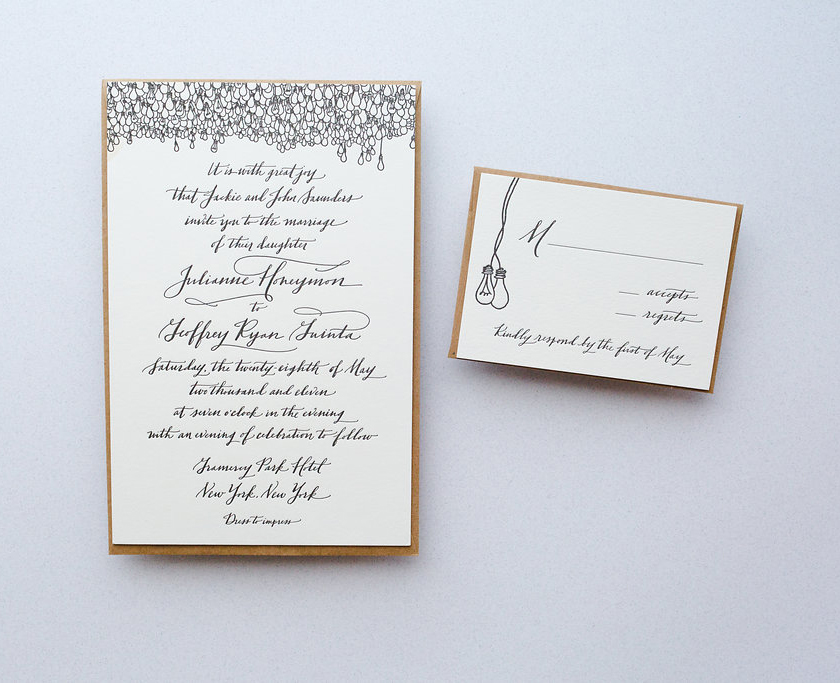 It is with great joy
that Jackie and John Saunders
invite you to the marriage
of their daughter
Julianne Honeymon
to
Geoffrey Ryan Guinta
Saturday, the twenty-eighth of May
two thousand and eleven
at seven o'clock in the evening
with an evening of celebration to follow
Gramercy Park Hotel
New York, New York
Dress to impress
M
accepts
regrets
Kindly respond by the first of May